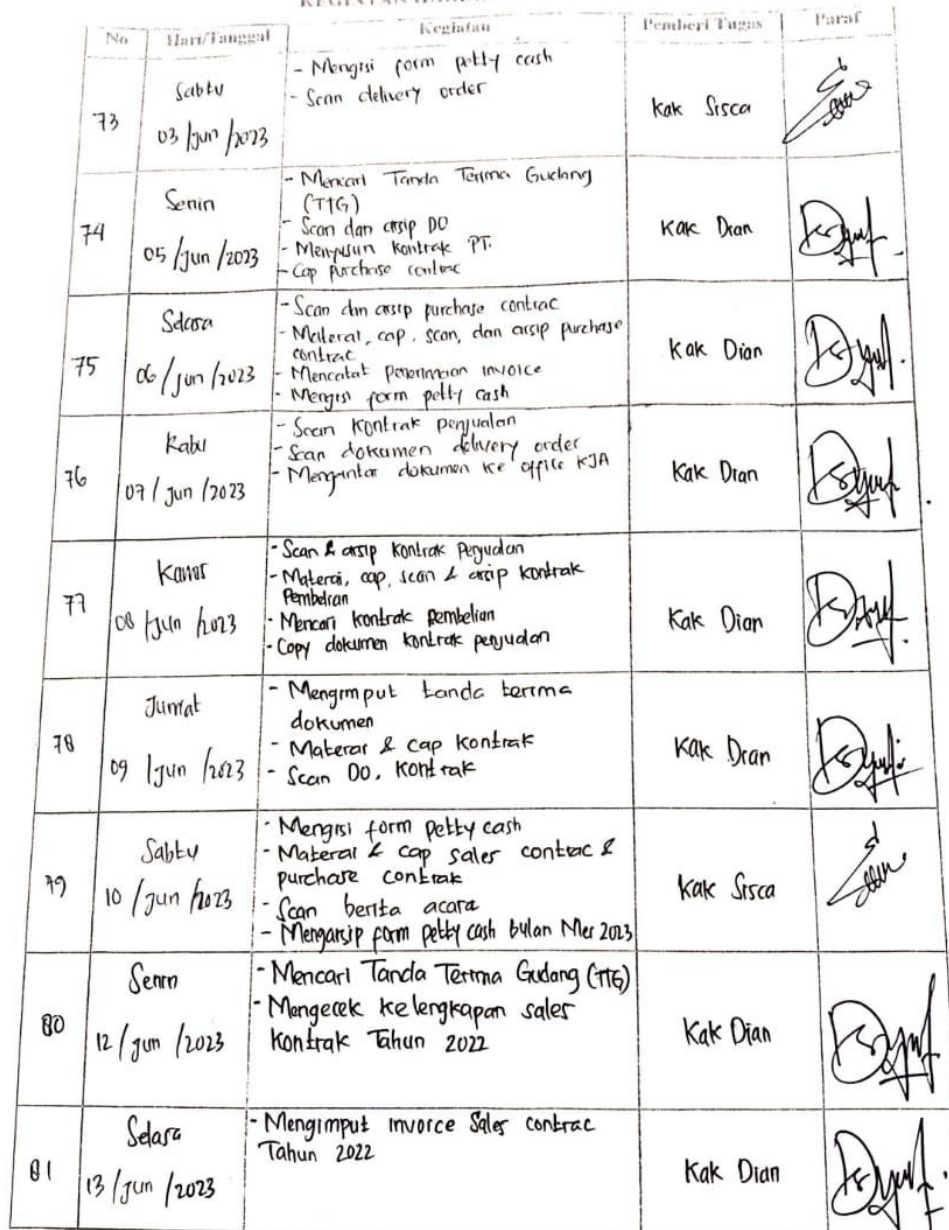 No Hari/Tanggal Kegiatan Pemberi Tugas Paraf
73
Sabtu
03/Jun/2023
- Mengisi form petty cash
- Scan delivery order
Kak Sisca
74
Senin
05/Jun/2023
- Mencari Tanda Terima Gudang
(TTG)
- Scan dan arsip DO
- Menyusun Kontrak PT.
- Cap purchase contrac
Kak Dian
75
Selasa
06/Jun/2023
- Scan dan arsip purchase contrac
- Materai, cap, scan, dan arsip purchase
contrac
- Mencatat penerimaan invoice
- Mengisi form petty cash
Kak Dian
76
Rabu
07/Jun/2023
- Scan Kontrak penjualan
- Scan dokumen delivery order
- Mengantar dokumen ke office KJA
Kak Dian
77
Kamis
08/Jun/2023
- Scan & arsip Kontrak Penjualan
- Materai, cap, scan & arsip kontrak
Pembelian
- Mencari kontrak Pembelian
- Copy dokumen kontrak penjualan
Kak Dian
78
Jumat
09/Jun/2023
- Mengimput tanda terima
dokumen
- Materai & cap Kontrak
- Scan DO, Kontrak
Kak Dian
79
Sabtu
10/Jun/2023
- Mengisi form petty cash
- Materai & cap sales contrac &
purchase contrak
- Scan berita acara
- Mengarsip form petty cash bulan Mei 2023
Kak Sisca
80
Senin
12/Jun/2023
- Mencari Tanda Terima Gudang (TTG)
- Mengecek kelengkapan sales
kontrak Tahun 2022
Kak Dian
81
Selasa
13/Jun/2023
- Mengimput invoice Sales contrac
Tahun 2022
Kak Dian